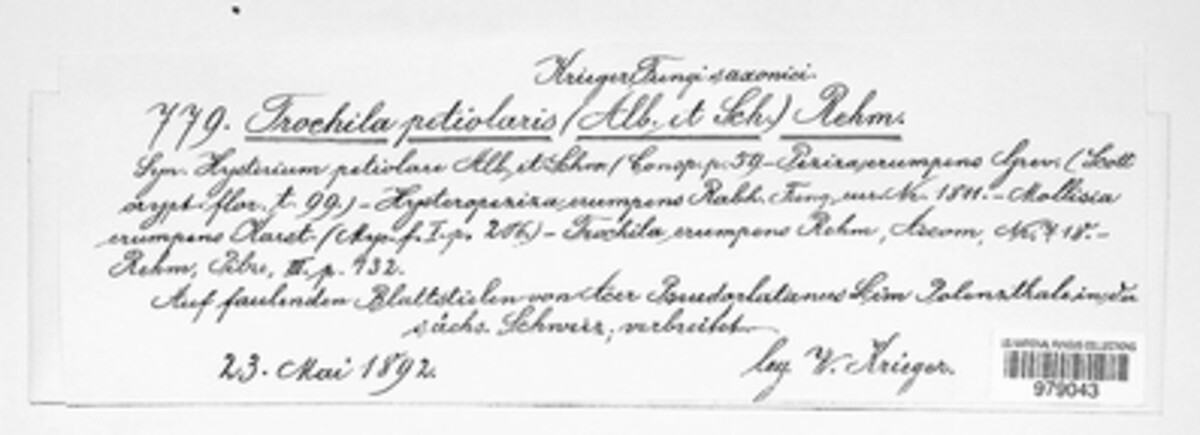 Krieger, Fungi saxonici.
779. Trochila petiolaris (Alb. et Sch.) Rehm.
Syn. Hysterium petiolare Alb. et Schw. (Consp. p. 59 – Peziza erumpens Grev. (Scott
crypt. flor. t. 99.) – Hysteropeziza erumpens Rabh. Fung. eur. Nr. 1811. – Mollisia
erumpens Karst. (Myc. f. I. p. 206.) – Trochila erumpens Rehm, Ascom, Nr. 718. –
Rehm, Pilze, III. p. 132.
Auf faulenden Blattstielen von Acer Pseudoplatanus L. im Polenzthale, in der
sächs. Schweiz, verbreitet.
23. Mai 1892.
leg W. Krieger.
US NATIONAL FUNGUS COLLECTIONS
979043